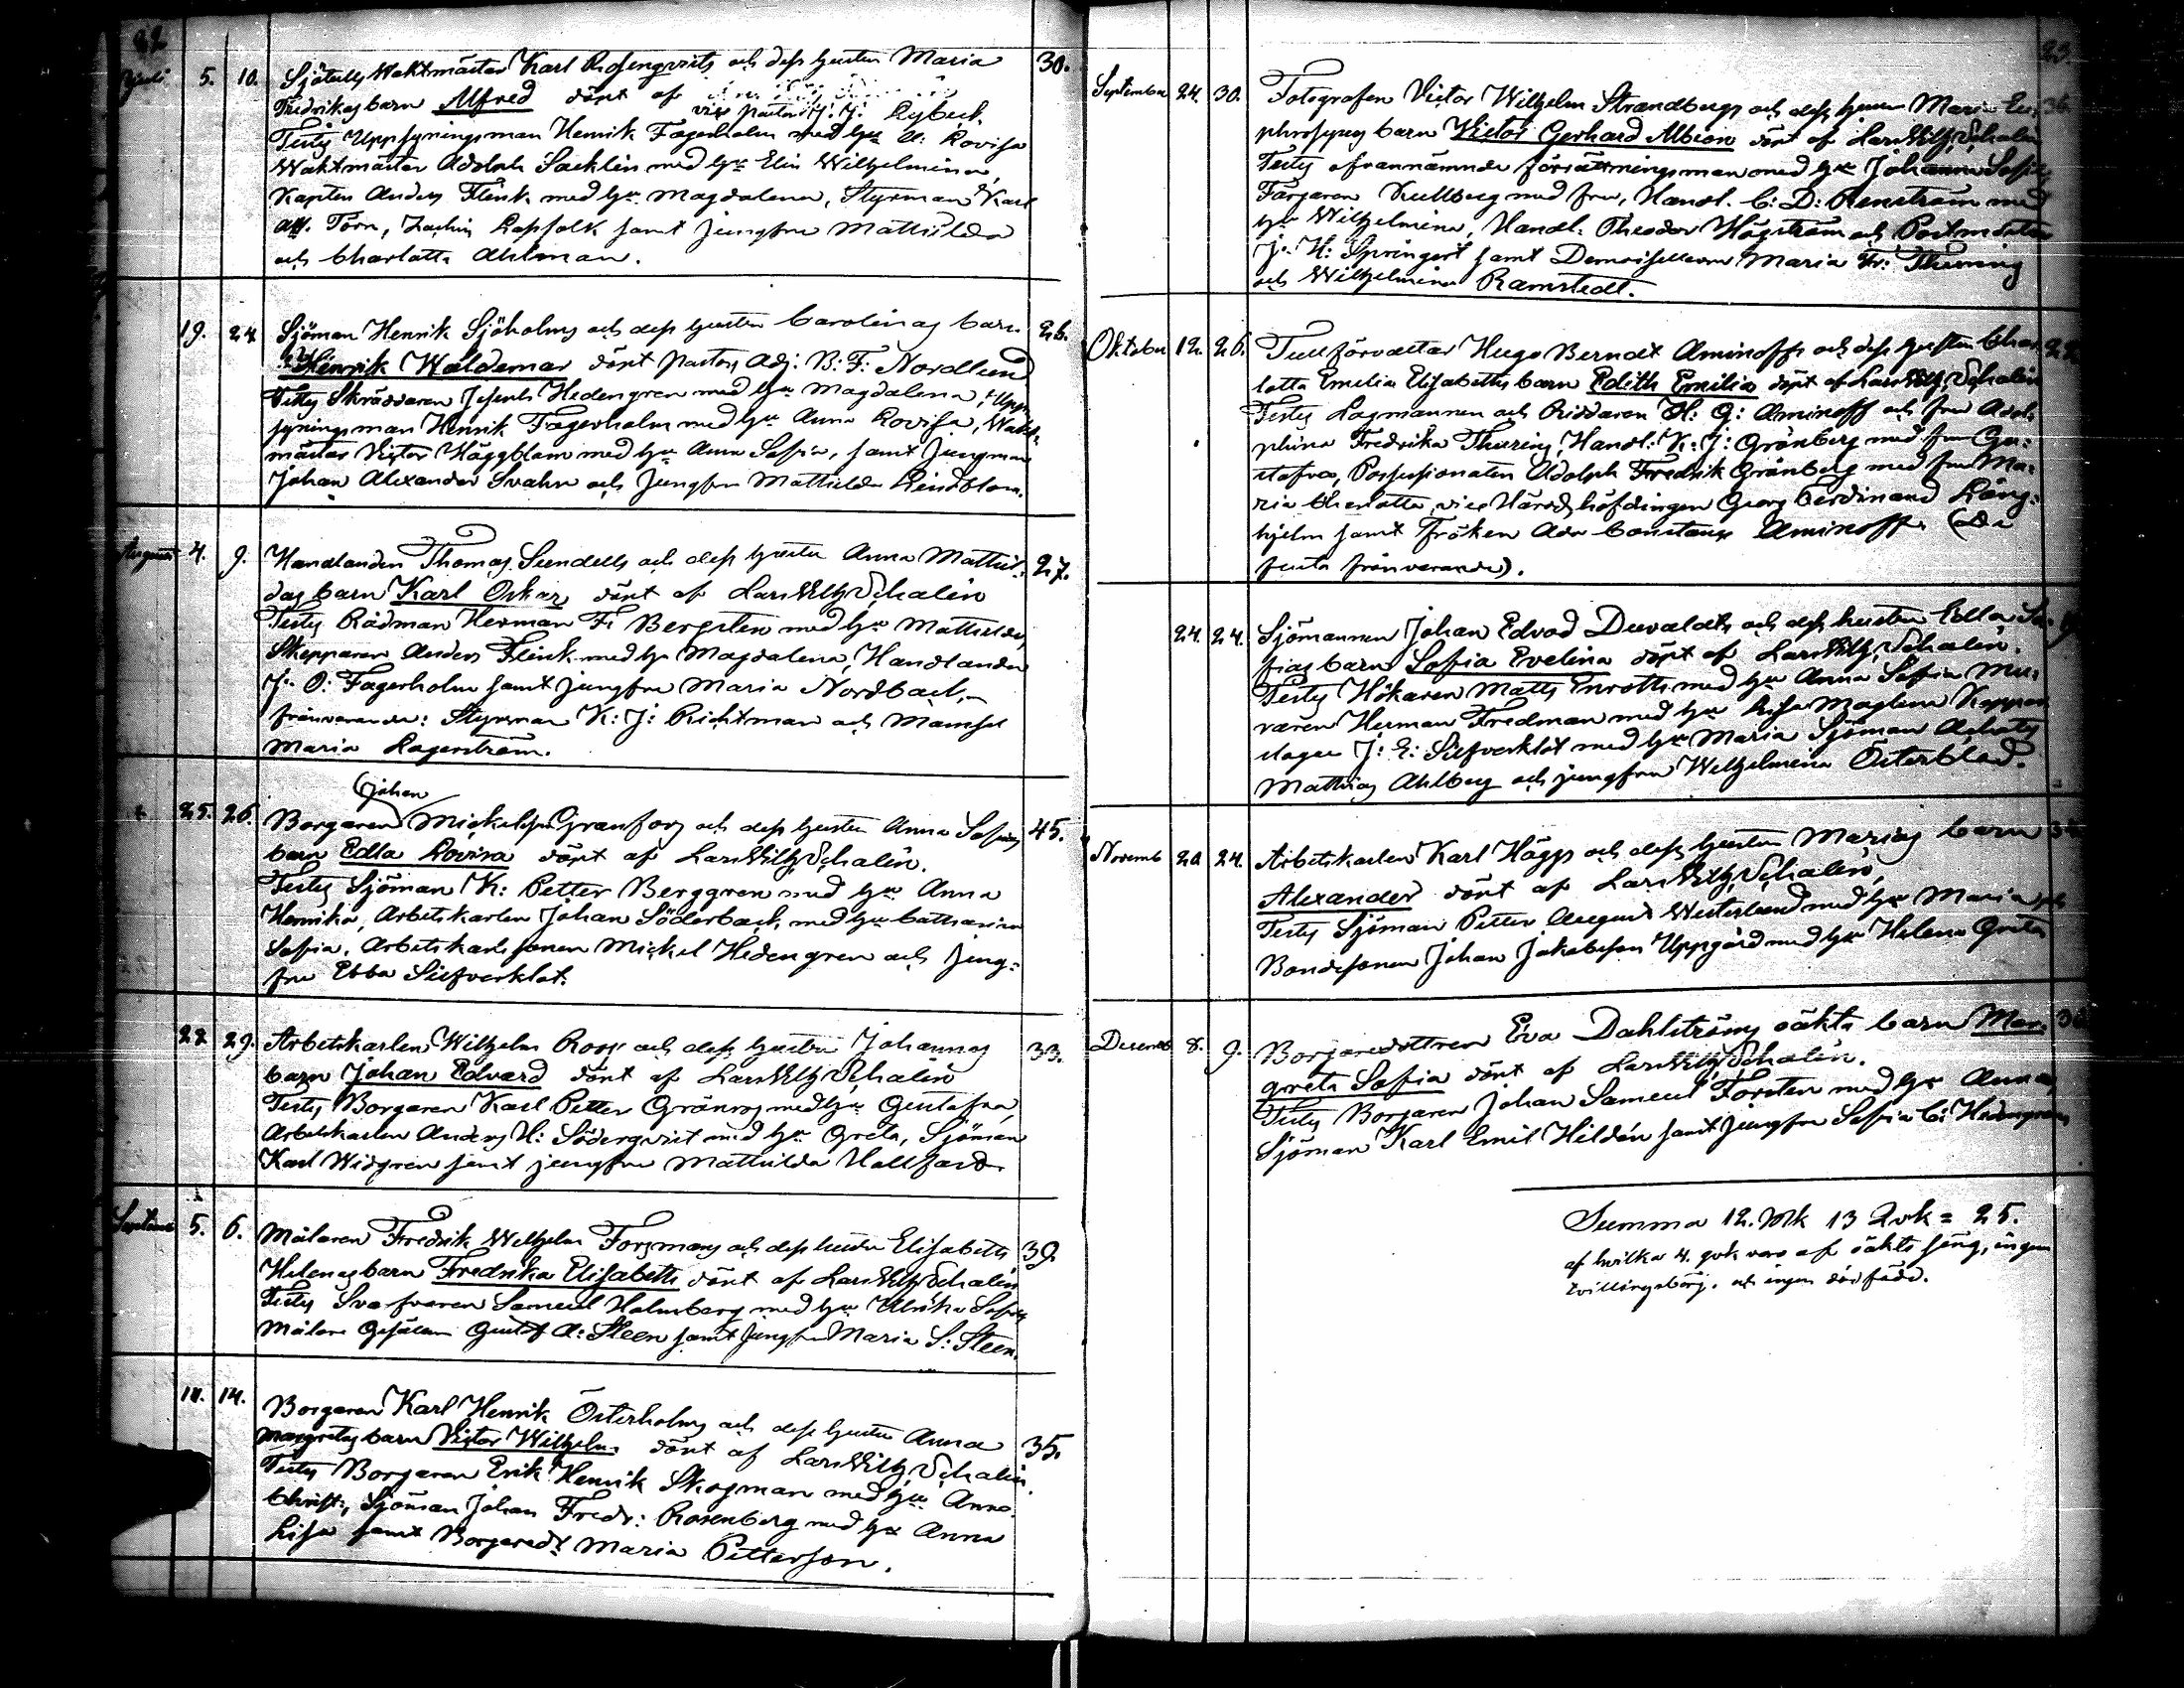 22
Juli 5. 10. Sjötulls Waktmästar Karl Rosenqvists och dess hustru Maria 30.
Fredrikas barn Alfred döpt af
vice pastor J. J. Rybeck
Testes Uppsyningsman Henrik Fagerholm med hu A: Lovisa
Waktmästar Adolph Sacklin med hu Elin Wilhelmina,
Kapten Anders Flink med hu Magdalena, Styrman Karl
Törn, samt jungfru Mathilda
och Charlotta Ahlman.
19. 24 Sjöman Henrik Sjöholms och dess hustru Carolinas barn 26.
Henrik Waldemar döpt Pastors Adj: B: F: Nordlund
Testes Skräddaren Joseph Hedengren med hu Magdalena, Upp-
syningsman Henrik Fagerholm med hu Anna Lovisa, Wakt-
mästar Victor Häggblom med hu Anna Sofia, samt Jungman
Johan Alexander Svahn och Jungfru Mathilda Lindblom.
Augusti 4. 9. Handlanden Thomas Sundells och dess hustru Anna Mathil- 27.
das barn Karl Oskar döpt af Lars Wilh. Schalin
Testes Rådman Herman Fr Bergsten med hu Mathilda,
Skepparen Anders Flink med hu Magdalena, Handlanden
J: O: Fagerholm samt jungfru Maria Nordbäck,
frånvarande: Styrman K: J: Richtman och Mamsel
Maria Lagerström.
Johan
25. 26. Borgaren Mickelsson Granfors och dess hustru Anna Sofias 45.
barn Edla Lovisa döpt af Lars Wilh. Schalin.
Testes Sjöman K: Petter Berggren med hu Anna
Henrika, Arbetskarlen Johan Söderback, med hu Catharina
Sofia, Arbetskarlssonen Mickel Hedengren och Jung-
fru Ebba Silfverklot.
28 29. Arbetskarlen Wilhelm Roos och dess hustru Johannas 33.
barn Johan Edvard döpt af Lars Wilh Schalin
Testes Borgaren Karl Petter Grönros med hu Gustafva,
Arbetskarlen Anders H: Söderqvist med hu Greta, Sjöman
Karl Widgren samt jungfru Mathilda Hallfard
Septemb 5. 6. Målaren Fredrik Wilhelm Forsmans och dess hustru Elisabeth 39.
Helenas barn Fredrika Elisabeth döpt af Lars Wilh Schalin
Testes Svarfvaren Samuel Holmberg med hu Ulrika Sofia,
Målare Gesällen Gustaf A: Steen samt jungfru Maria S: Steen.
14. Borgaren Karl Henrik Österholms och dess hustru Anna 35.
Margretas barn Victor Wilhelm döpt af Lars Wilh Schalin.
Testes Borgaren Erik Henrik Skogman med hu Anna
Christ:, Sjöman Johan Fredr: Rosenberg med hu Anna
Lisa samt Borgaredt Maria Petterson.
23
September 24. 30. Fotografen Victor Wilhelm Strandbergs och dess hustru Maria Eu-
phrosynes barn Victor Gerhard Albion döpt af Lars Wilh. Schalin
Testes ofvannämnde församm med hu Johanna Sofia,
Färgaren Kullberg med fru, Handl. C: D: Renström med
hu Wilhelmina, Handl: Theodor Högström och Postmästar
J: H: Springert samt Demoisellerna Maria Fr: Thuring
och Wilhelmina Ramstedt.
Oktober 12. 26. Tullförvaltar Hugo Berndt Aminoffs och dess hustru Char-
lotta Emelia Elisabeths barn Edith Emilia döpt af Lars Wilh. Schalin
Testes Lagmannen och Riddaren H: G: Aminoff och fru Adol-
phina Fredrika Thuring, Handl: K: J: Grönberg med fru Gu-
stafva, Possessionaten Adolph Fredrik Grönberg med fru Ma-
ria Charlotta, vice Häradshöfdingen Georg Ferdinand Lång-
hjelm samt Fröken Ada Constance Aminoff. (De
frånvarande).
24. 24. Sjömannen Johan Edvad Duvaldts och dess hustru Edla So-
fias barn Sofia Evelina döpt af Lars Wilh. Schalin.
Testes Hökaren Matts Enroth med hu Anna Sofia Mu-
raren Herman Fredman med hu Lisa Maglena Koppar
slagar J: E: Silfverklot med hu Maria Sjöman
Mathias Ahlberg och jungfru Wilhelmina Österblad.
Novemb 20. 24. Arbetskarlen Karl Häggs och dess hustru Marias barn
Alexander döpt af Lars Wilh. Schalin,
Testes Sjöman Petter August Westerlund med hu Maria och
Bondesonen Johan Jakobsson Uppgård med hu Helena Greta
Decemb 8. 9. Borgaredottren Eva Dahlströms oäkta barn Mar-
greta Sofia döpt af Lars Wilh. Schalin.
Testes Borgaren Johan Samuel Forsten med hu Anna,
Sjöman Karl Emil Hildén samt jungfru Sofia C: Hedengren
Summa 12. Mk 13 Qvk = 25.
af hvilka 4. qvk voro af oäkta säng, ingen
tvillingsbörd. och ingen dödfödd.